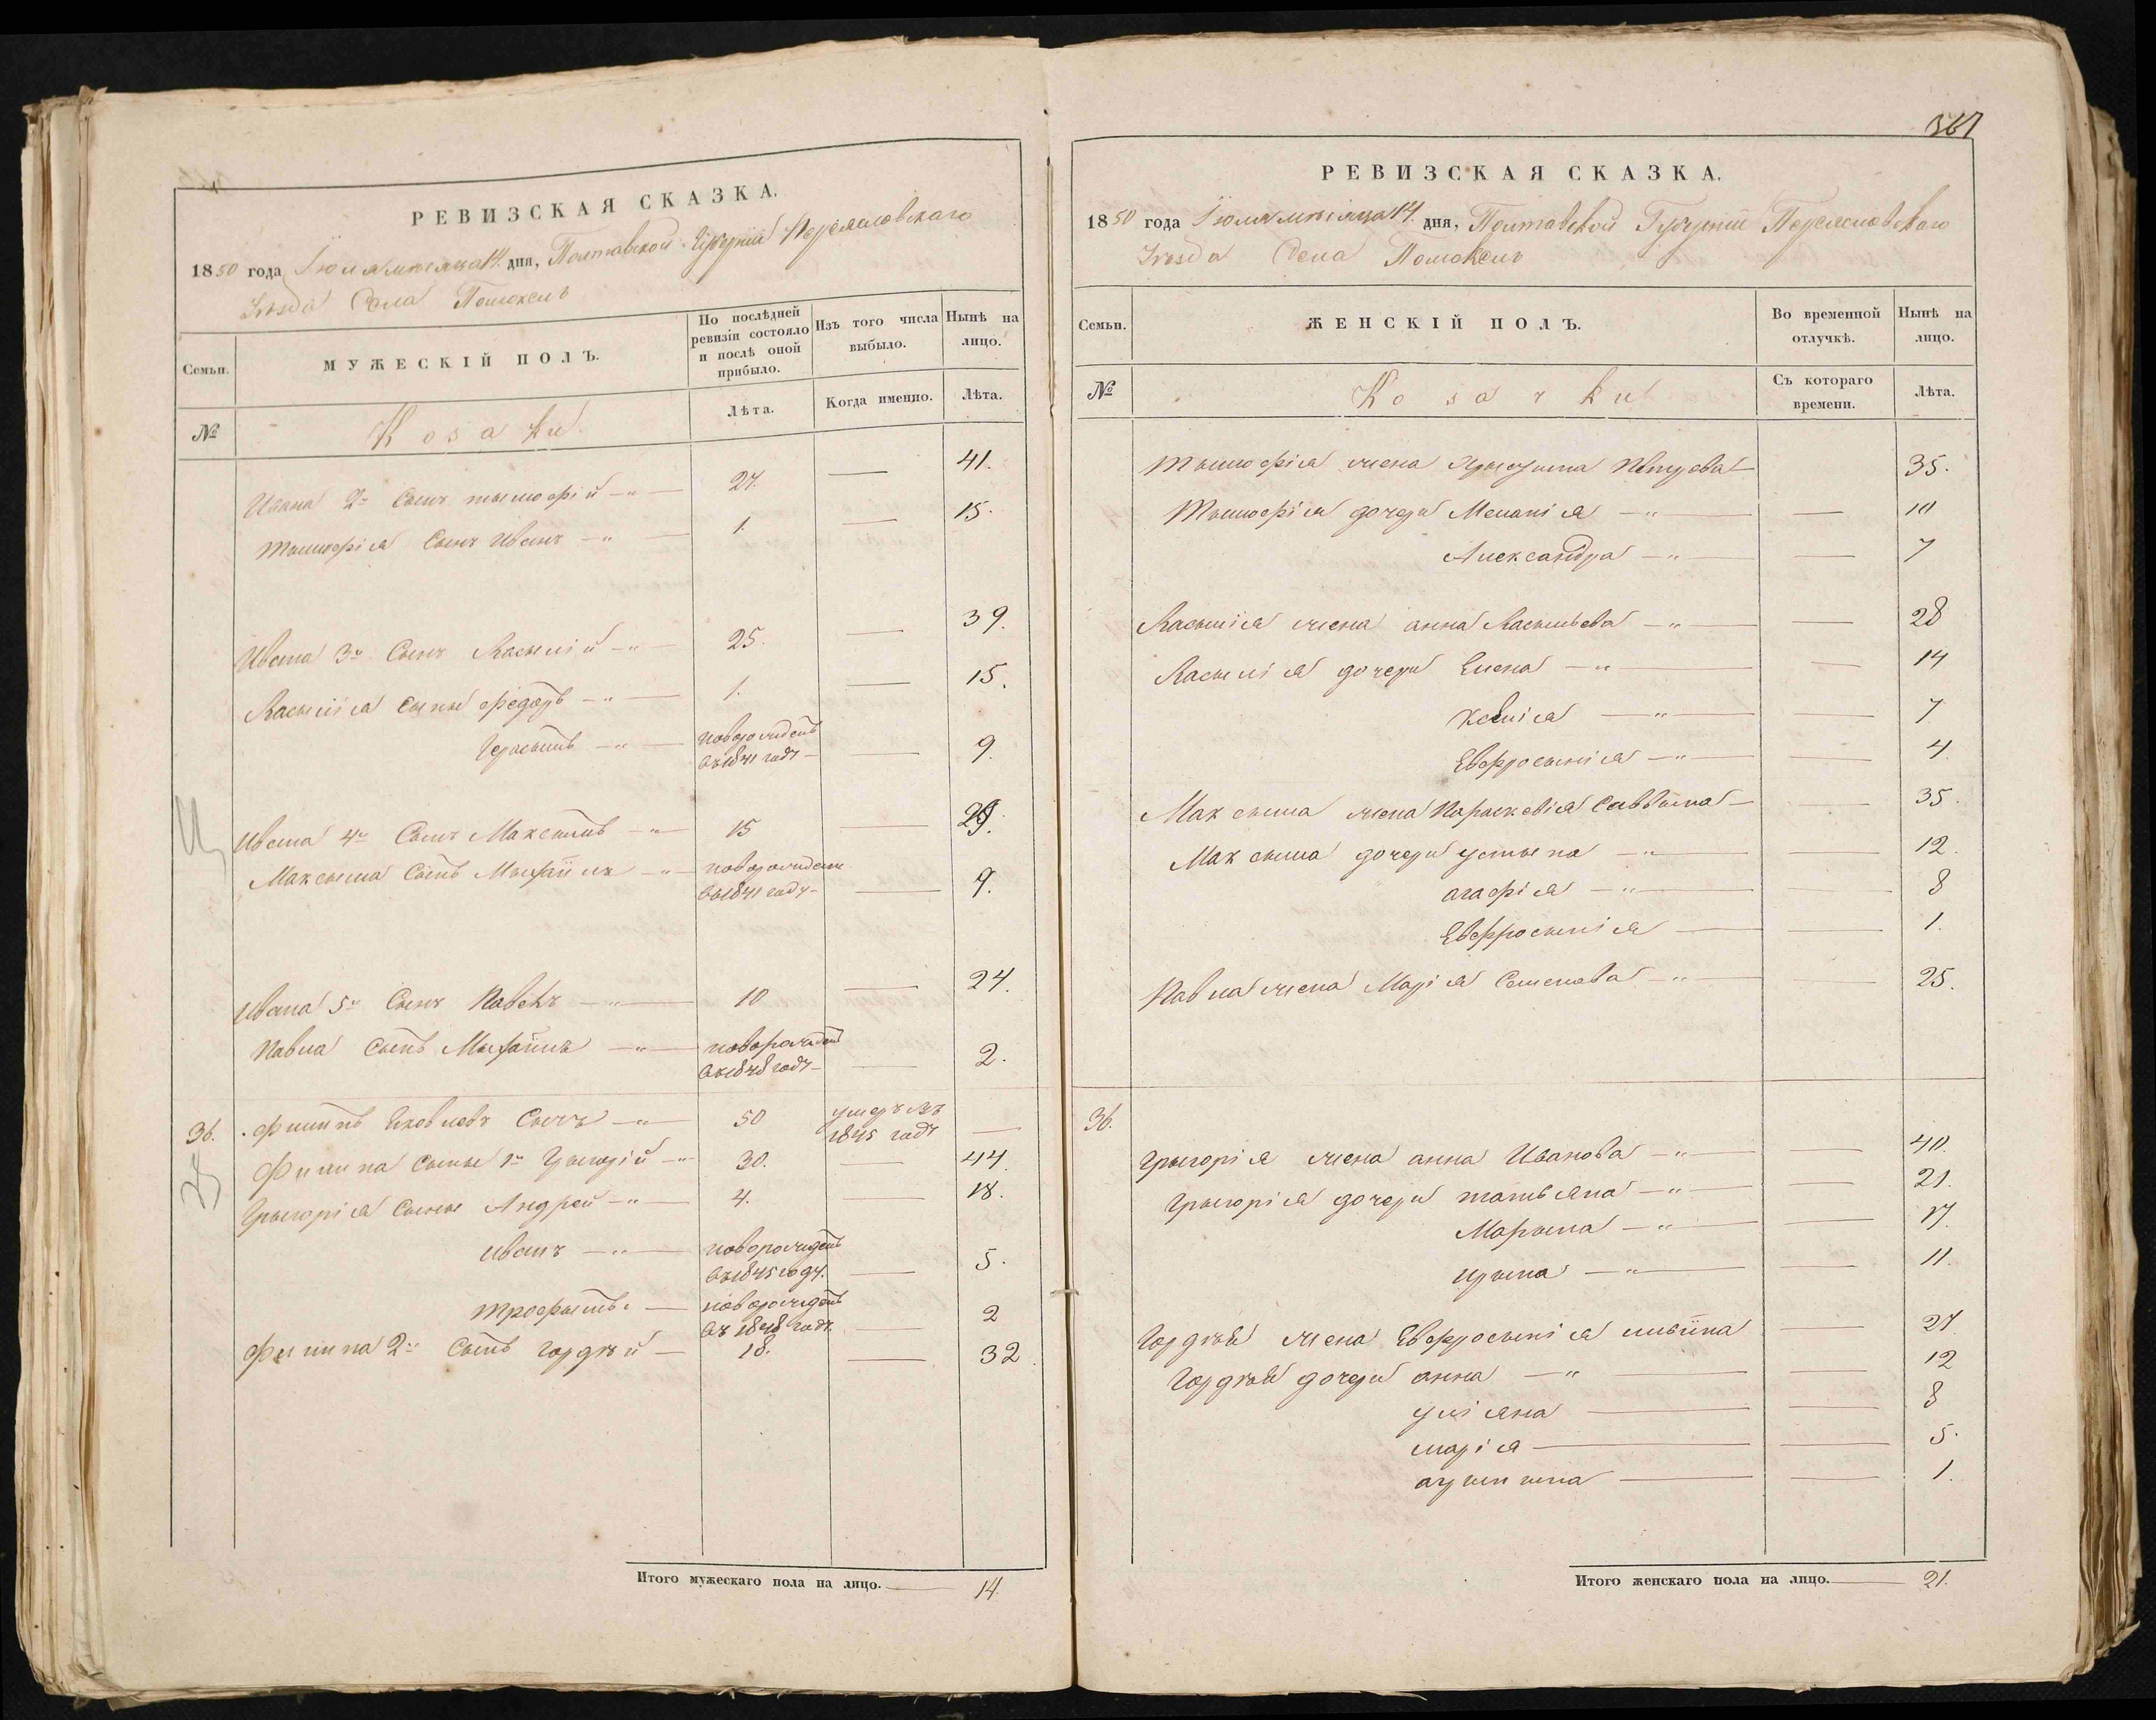 РЕВИЗСКАЯ СКАЗКА.
1850 года Іюля мѣсяца 14. дня, Полтавской Губерніи Переяславскаго
Уѣзда Села Помоклъ
Семьи.
МУЖЕСКІЙ ПОЛЪ.
По послѣдней ревизіи состояло и послѣ оной прибыло.
Изъ того числа выбыло.
Нынѣ на лицо.
№
Козаки.
Лѣта.
Когда именно.
Лѣта.
Ивана 2й Сынъ тымофій —"— 27. — 41.
Тымофія Сынъ Иванъ —"— 1. — 15.
Ивана 3й Сынъ Василій —"— 25. — 39.
Василія Сыны Федоръ —"— 1. — 15.
Герасымъ —"— новорожденъ
въ 1841 годѣ — 9.
Ивана 4й Сынъ Максымъ —"— 15 — 29.
Максыма Сынъ Мыхайлъ —"— новорожденъ
въ 1841 году — 9.
Ивана 5й Сынъ Павелъ —"— 10 — 24.
Павла Сынъ Мыхайлъ —"— новорожденъ
въ 1848 годѣ — 2.
36. Филипъ Яковлевъ Сычъ —"— 50 умеръ въ
1845 годѣ —
Филипа Сыны 1й Грыгорій —"— 30. — 44.
Грыгорія Сыны Андрей —"— 4. — 18.
Иванъ —"— новорожденъ
въ 1845 году. — 5.
трофымъ — новорожденъ
въ 1848 годѣ. — 2
Филипа 2й Сынъ Гордѣй — 18. — 32.
Итого мужескаго пола на лицо. — 14.
367
РЕВИЗСКАЯ СКАЗКА.
1850 года Іюля мѣсяца 14. дня, Полтавской Губерніи Переяславскаго
Уѣзда Села Помоклъ
Семьи.
ЖЕНСКІЙ ПОЛЪ.
Во временной отлучкѣ.
Нынѣ на лицо.
№
Козачки
Съ котораго времени.
Лѣта.
Тымофія жена Петрова — 35.
Тымофія дочери Меланія —"— 10
Александра —"— 7
Василія жена анна Васильева —"— 28
Василія дочери Елена —"— 14
Ксенія —"— 7
Евфросынія —"— 4.
Максыма жена Параскевія Саввына — 35.
Максыма дочери устына —"— 12.
агафія —"— 8
Евфросынія — 1.
Павла жена Марія Семенова —"— 25.
36.
Грыгорія жена анна Иванова —"— 40.
Грыгорія дочери татьяна —"— 21.
Марына —"— 17.
Ирына —"— 11.
Гордѣя жена Евфросынія — 27
Гордѣя дочери анна —"— 12
уліяна — 8
марія — 5.
— 1.
Итого женскаго пола на лицо. — 21.